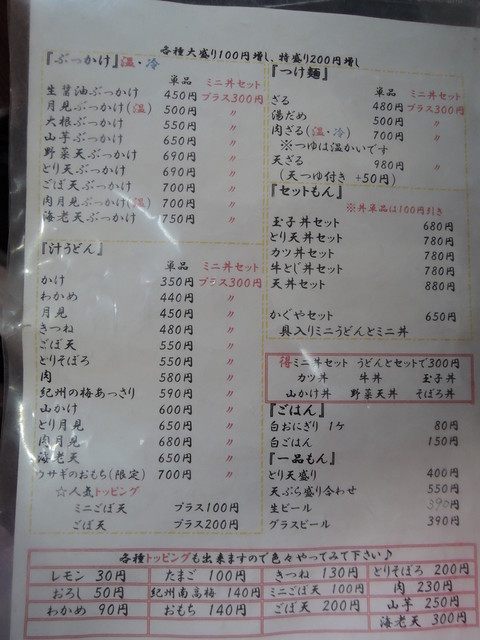 各種大盛り100円増し、特盛り200円増し
『ぶっかけ』温・冷
単品 ミニ丼セット
生醤油ぶっかけ 450円 プラス300円
月見ぶっかけ(温) 500円 〃
大根ぶっかけ 550円 〃
山芋ぶっかけ 650円 〃
野菜天ぶっかけ 690円 〃
とり天ぶっかけ 690円 〃
ごぼ天ぶっかけ 700円 〃
肉月見ぶっかけ(温) 700円 〃
海老天ぶっかけ 750円 〃
『汁うどん』
単品 ミニ丼セット
かけ 350円 プラス300円
わかめ 440円 〃
月見 450円 〃
きつね 480円 〃
ごぼ天 550円 〃
とりそぼろ 550円 〃
肉 580円 〃
紀州の梅あっさり 590円 〃
山かけ 600円 〃
とり月見 650円 〃
肉月見 680円 〃
海老天 650円 〃
ウサギのおもち(限定) 700円 〃
☆人気トッピング
ミニごぼ天 プラス100円
ごぼ天 プラス200円
『つけ麺』
単品 ミニ丼セット
ざる 480円 プラス300円
湯だめ 500円 〃
肉ざる(温・冷) 700円 〃
※つゆは温かいです
天ざる 980円 〃
(天つゆ付き +50円)
『セットもん』
※丼単品は100円引き
玉子丼セット 680円
とり天丼セット 780円
カツ丼セット 780円
牛とじ丼セット 780円
天丼セット 880円
かぐやセット 650円
具入りミニうどんとミニ丼
得ミニ丼セット うどんとセットで300円
カツ丼 牛丼 玉子丼
山かけ丼 野菜天丼 そぼろ丼
『ごはん』
白おにぎり 1ケ 80円
白ごはん 150円
『一品もん』
とり天盛り 400円
天ぷら盛り合わせ 550円
生ビール 390円
グラスビール 390円
各種トッピングも出来ますので色々やってみて下さい♪
レモン 30円 たまご 100円 きつね 130円 とりそぼろ 200円
おろし 50円 紀州南高梅 140円 ミニごぼ天 100円 肉 230円
わかめ 90円 おもち 140円 ごぼ天 200円 山芋 250円
海老天 300円